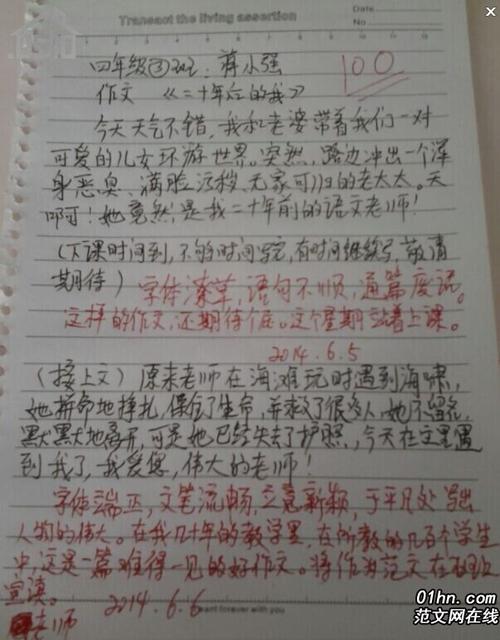 Transact the living assertion
Date
No
四年级③班:蒋小强
100
作文 《二十年后的我》
今天天气不错,我和老婆带着我们一对
可爱的儿女环游世界。突然,路边冲出一个浑
身恶臭、满脸污秽、无家可归的老太太。天
啊!她竟然是我二十年前的语文老师!
(下课时间到,不够时间写完,有时间继续写,敬请
期待)
字体潦草,语句不顺,通篇废话。
这样的作文,还期待个屁。这个星期站着上课。
2014.6.5
(接上文)原来老师在海滩玩时遇到海啸,
她拼命地挣扎,保住了生命,并救了很多人,她不留名,
默默地离开,可是她已经失去了护照,今天在这里遇
到我了,我爱您,伟大的老师!
字体端正,文笔流畅,立意新颖,于平凡处写出
人物的伟大。在我几十年的教学里,在所教的几百个学生
中,这是一篇难得一见的好作文。将作为范文在全班
宣读。
老师 2014.6.6
want forever with you
01hn.com
范文网在线